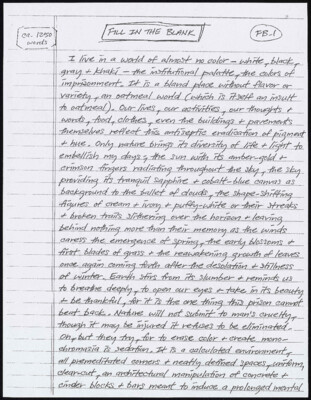 ca. 1050 words
FILL IN THE BLANK
PG. 1
I live in a world of almost no color – white, black,
gray + khaki – the institutional palette, the colors of
imprisonment. It is a bland place without flavor or
variety, an oatmeal world (which is itself an insult
to oatmeal). Our lives, our activities, our thoughts +
words, food, clothes, even the buildings + pavements
themselves reflect this antiseptic eradication of pigment
+ hue. Only nature brings its diversity of life + light to
embellish my days, the sun with its amber-gold +
crimson fingers radiating throughout the sky, the sky
providing its tranquil sapphire + cobalt-blue canvas as
background to the ballet of clouds, the shape-shifting
figures of cream + ivory + putty-white or their streaks
+ broken trails slithering over the horizon + leaving
behind nothing more than their memory as the winds
caress the emergence of spring, the early blossoms +
first blades of grass + the reawakening growth of leaves
once again coming forth after the desolation + stillness
of winter. Earth stirs from its slumber + reminds us
to breathe deeply, to open our eyes + take in its beauty
+ be thankful, for it is the one thing this prison cannot
beat back. Nature will not submit to man's cruelty,
though it may be injured it refuses to be eliminated.
Oh, but they try, for to erase color + create mono-
chromasia is sedation. It is a calculated environment,
all premeditated corners + neatly defined spaces, uniform,
clear-cut, an architectural manipulation of concrete +
cinder blocks + bars meant to induce a prolonged mental